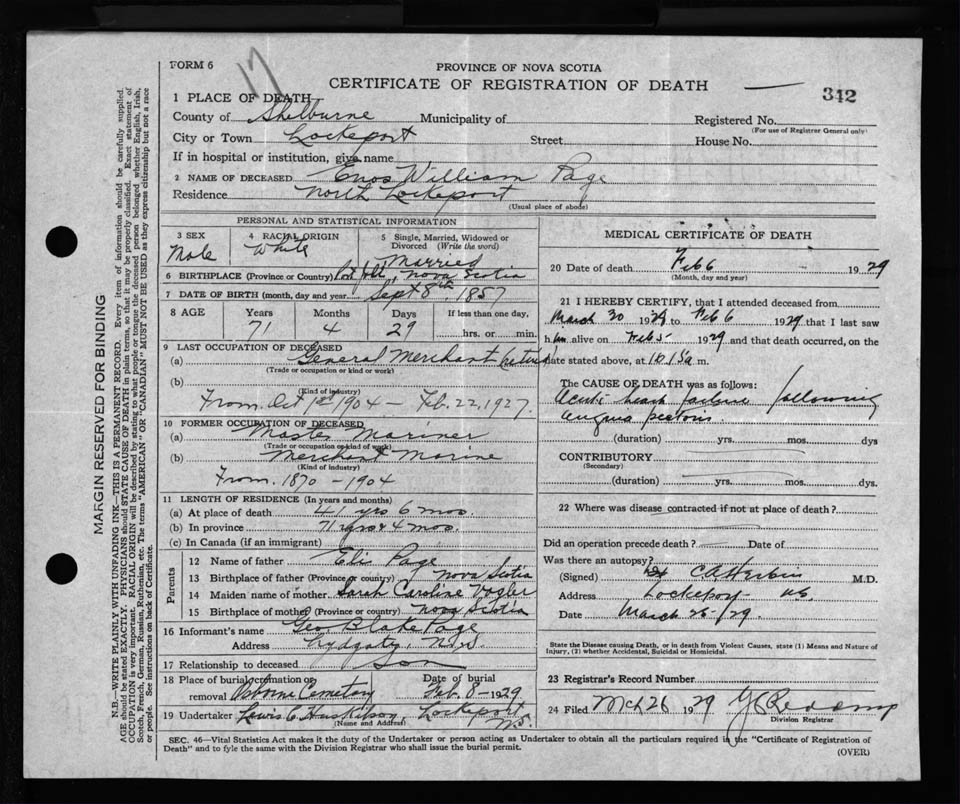 17
FORM 6
PROVINCE OF NOVA SCOTIA
CERTIFICATE OF REGISTRATION OF DEATH
342
1 PLACE OF DEATH
County of Shelburne Municipality of Registered No.
(For use of Registrar General only)
City or Town Lockeport Street House No.
If in hospital or institution, give name
2 NAME OF DECEASED Enos William Page
Residence North Lockeport
(Usual place of abode)
PERSONAL AND STATISTICAL INFORMATION
3 SEX 4 RACIAL ORIGIN 5 Single, Married, Widowed or Divorced (Write the word)
Male White Married
6 BIRTHPLACE (Province or Country) Nova Scotia
7 DATE OF BIRTH (month, day and year) Sept 8th 1857
8 AGE Years Months Days If less than one day,
71 4 29 hrs. or min.
9 LAST OCCUPATION OF DECEASED
(a) General Merchant (retired)
(Trade or occupation or kind or work)
(b)
(Kind of industry)
From Oct 1st 1904 – Feb. 22, 1927.
10 FORMER OCCUPATION OF DECEASED
(a) Master Mariner
(Trade or occupation or kind of work)
(b) Merchant Marine
(Kind of industry)
From. 1870 – 1904
11 LENGTH OF RESIDENCE (In years and months)
(a) At place of death 41 yrs 6 mos.
(b) In province 71 yrs 4 mos.
(c) In Canada (if an immigrant)
Parents
12 Name of father Eli Page
13 Birthplace of father (Province or country) Nova Scotia
14 Maiden name of mother Sarah Caroline Vogler
15 Birthplace of mother (Province or country) Nova Scotia
16 Informant's name Geo Blake Page
Address Lydgate, N.S.
17 Relationship to deceased Son
18 Place of burial, cremation or removal Osborne Cemetary Date of burial Feb. 8 – 1929
19 Undertaker Lewis C Huskilson Lockeport N.S.
(Name and Address)
MEDICAL CERTIFICATE OF DEATH
20 Date of death Feb 6 1929
(Month, day and year)
21 I HEREBY CERTIFY, that I attended deceased from
March 30 1929 to Feb 6 1929 that I last saw
him alive on Feb 5 1929 and that death occurred, on the
date stated above, at 10 15 a m.
The CAUSE OF DEATH was as follows:
Acute heart failure following
angina pectoris
(duration) yrs. mos. dys
CONTRIBUTORY
(Secondary)
(duration) yrs. mos. dys.
22 Where was disease contracted if not at place of death?
Did an operation precede death? Date of
Was there an autopsy?
(Signed) M.D.
Address Lockeport NS
Date March 26 /29
State the Disease causing Death, or in death from Violent Causes, state (1) Means and Nature of Injury, (2) whether Accidental, Suicidal or Homicidal.
23 Registrar's Record Number
24 Filed Mch 26 1929
Division Registrar
SEC. 46—Vital Statistics Act makes it the duty of the Undertaker or person acting as Undertaker to obtain all the particulars required in the "Certificate of Registration of
Death" and to file the same with the Division Registrar who shall issue the burial permit.
(OVER)
MARGIN RESERVED FOR BINDING
N.B.—WRITE PLAINLY WITH UNFADING INK—THIS IS A PERMANENT RECORD. Every item of information should be carefully supplied.
AGE should be stated EXACTLY. PHYSICIANS should STATE CAUSE OF DEATH in plain terms, so that it may be properly classified. Exact statement of
OCCUPATION is very important. RACIAL ORIGIN will be described by stating to what people or tongue the deceased person belonged, whether English, Irish,
Scotch, French, German, Russian, Ruthenian, etc. The terms "AMERICAN" OR "CANADIAN" MUST NOT BE USED as they express citizenship but not a race
or people. See instructions on back of Certificate.